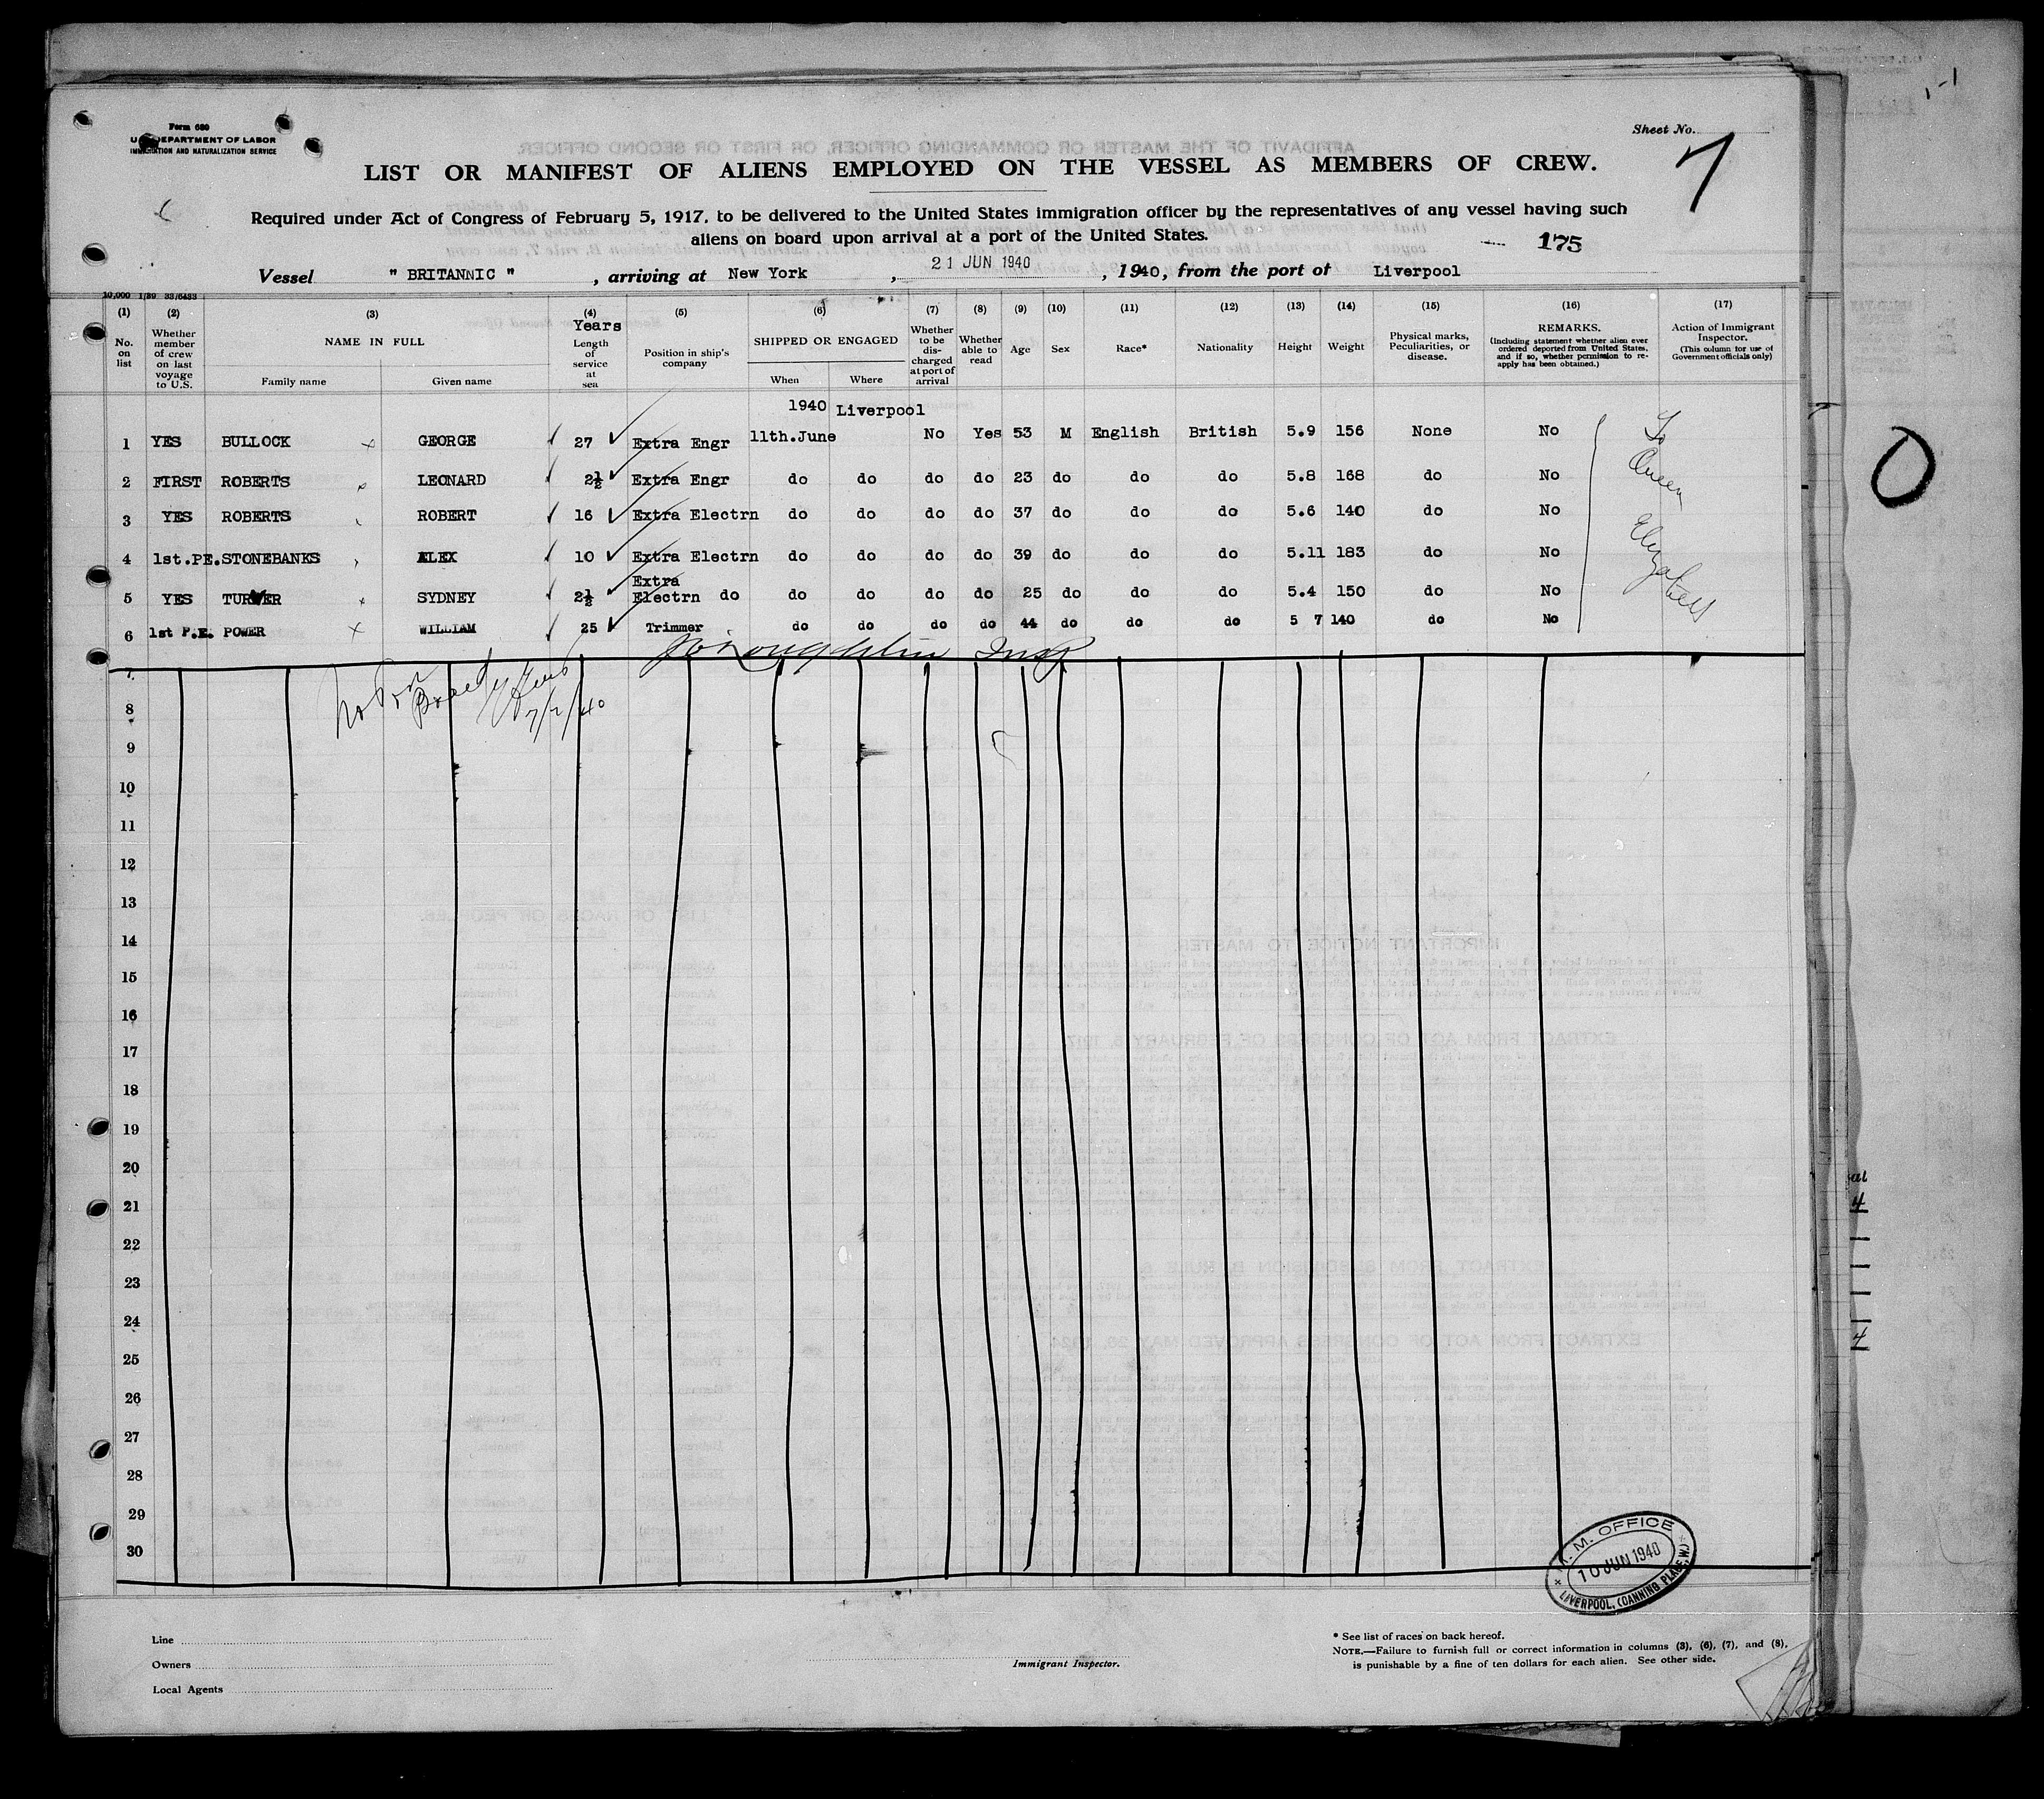 Form 680
U. S. DEPARTMENT OF LABOR
IMMIGRATION AND NATURALIZATION SERVICE
Sheet No.
7
LIST OR MANIFEST OF ALIENS EMPLOYED ON THE VESSEL AS MEMBERS OF CREW.
Required under Act of Congress of February 5, 1917, to be delivered to the United States immigration officer by the representatives of any vessel having such
aliens on board upon arrival at a port of the United States.
175
Vessel " BRITANNIC " , arriving at New York , 21 JUN 1940 , 1940, from the port of Liverpool
10,000 1/39 33/6433
(1) (2) (3) (4) (5) (6) (7) (8) (9) (10) (11) (12) (13) (14) (15) (16) (17)
No. on list
Whether member of crew on last voyage to U.S.
NAME IN FULL
Family name Given name
Years
Length of service at sea
Position in ship's company
SHIPPED OR ENGAGED
When Where
Whether to be discharged at port of arrival
Whether able to read
Age
Sex
Race*
Nationality
Height
Weight
Physical marks, Peculiarities, or disease.
REMARKS.
(Including statement whether alien ever ordered deported from United States, and if so, whether permission to reapply has been obtained.)
Action of Immigrant Inspector.
(This column for use of Government officials only)
1940 Liverpool
1 YES BULLOCK GEORGE 27 Extra Engr 11th.June No Yes 53 M English British 5.9 156 None No
2 FIRST ROBERTS LEONARD 2½ Extra Engr do do do do 23 do do do 5.8 168 do No
3 YES ROBERTS ROBERT 16 Extra Electrn do do do do 37 do do do 5.6 140 do No
4 1st.PE. STONEBANKS ALEX 10 Extra Electrn do do do do 39 do do do 5.11 183 do No
5 YES TURNER SYDNEY 2½ Extra Electrn do do do do do 25 do do do 5.4 150 do No
6 1st P.E. POWER WILLIAM 25 Trimmer do do do do 44 do do do 5 7 140 do No
To Queen Elizabeth
Insp
7
8
9
10
11
12
13
14
15
16
17
18
19
20
21
22
23
24
25
26
27
28
29
30
M. M. OFFICE
10 JUN 1940
LIVERPOOL, (CANNING PLACE, W.)
Line
Owners
Local Agents
Immigrant Inspector.
* See list of races on back hereof.
NOTE.—Failure to furnish full or correct information in columns (3), (6), (7), and (8),
is punishable by a fine of ten dollars for each alien. See other side.